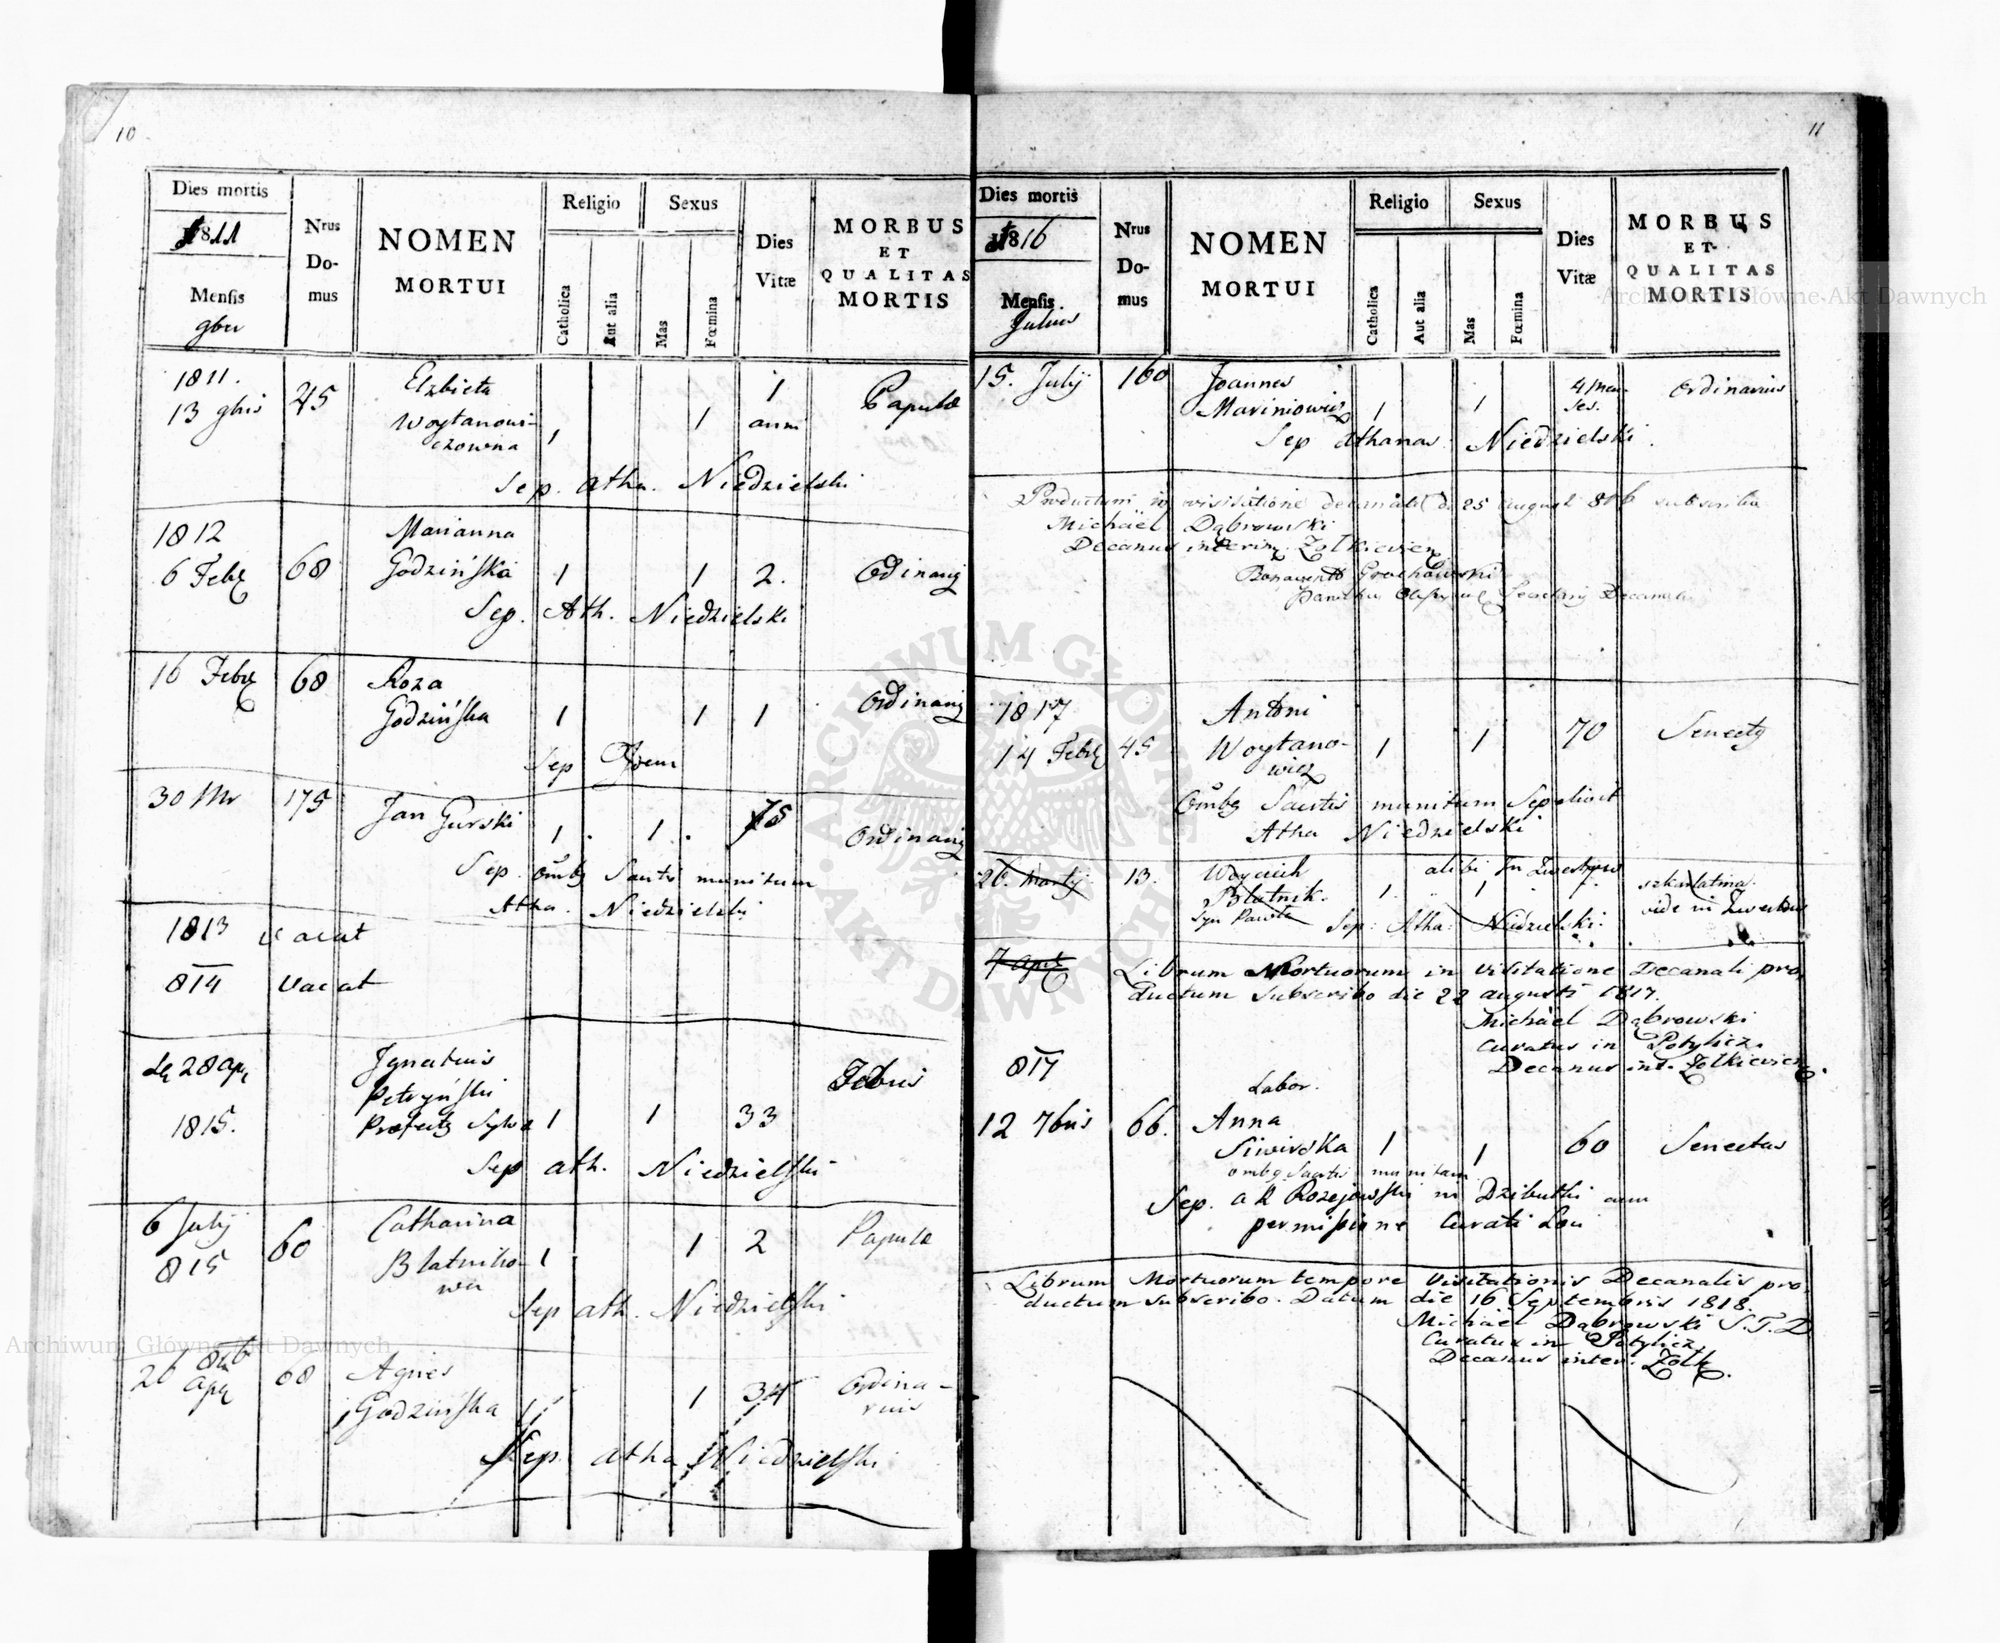 10
Dies mortis
1811
Mensis
9bri
Nrus
Do-
mus
NOMEN
MORTUI
Religio
Catholica
Aut alia
Sexus
Mas
Fœmina
Dies
Vitæ
MORBUS
ET
QUALITAS
MORTIS
1811.
13 9bris 45 Elzbieta
Woytanowi-
czowna 1 1 1 anni Papulæ
Sep. Atha. Niedzielski
1812
6 Febr 68 Marianna
Godzińska 1 1 2. Odinarius
Sep. Ath. Niedzielski
16 Febr 68 Roza
Godzińska 1 1 1 Ordinarius
Sep Idem
30 175 Jan Gurski 1. 1. 75 Ordinarius
Sep. ombg munitum
Atha. Niedzielski
1813 vacat
814 vacat
28 Apr
1815. Ignatius
Petryński
1 1 33
Sep ath. Niedzielski
6 July
815 60 Catharina
Blatniko-
wa 1 1 2 Papulæ
Sep ath. Niedzielski
816
26 Apr 68 Agnes
Godzińska 1 1 34 Ordina-
rius
Sep Atha Niedzielski
11
Dies mortis
1816
Mensis
Julius
Nrus
Do-
mus
NOMEN
MORTUI
Religio
Catholica
Aut alia
Sexus
Mas
Fœmina
Dies
Vitæ
MORBUS
ET
QUALITAS
MORTIS
15. July 160 Joannes
Mariniowicz 1 1 4 Men-
ses. Ordinarius
Sep Athanas Niedzielski.
Productum in visitatione decanali d. 25 august 816 subscribo
Michaël Dąbrowski
Decanus interim. Zołkievien
Grochowski
1817
14 Febr 45 Antoni
Woytano-
wicz 1 1 70 Senecty
Ombg munitum Sepelivit
Atha Niedzielski
26. Martij 13. Woyciech
Blatnik.
Syn Pawła alibi In
1. 1 szkarlatina.
vide in
Sep: Atha: Niedzielski.
7 Apr
Librum Mortuorum in visitatione Decanali pro,
ductum subscribo die 22 augusti 1817.
Michaël Dąbrowski
Curatus in Potylicz.
Decanus int. Zołkievien.
817
Labor.
12 7bris 66. Anna
Siwirska 1 1 60 Senectus
ombg munitam
Sep. in Dzibułki cum
permissione Curati Loci
Librum Mortuorum tempore Visitationis Decanalis pro,
ductum subscribo. Datum die 16 Septembris 1818.
Michaël Dąbrowski S.T.D
Curatus in Potylicz,
Decanus inter. Zołk.
ARCHIWUM GŁÓWNE AKT DAWNYCH
Archiwum Główne Akt Dawnych
Archiwum Główne Akt Dawnych